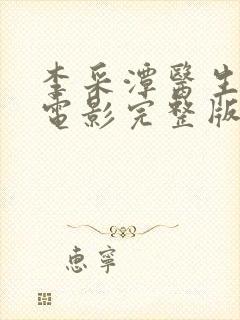 李采潭醫生
電影完整版
惠寧